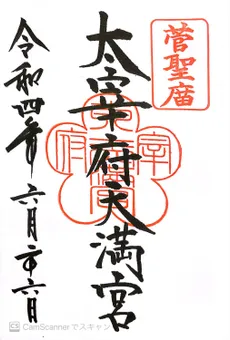 菅聖庿
太宰府天満宮
令和四年 六月二十六日
CamScannerでスキャン